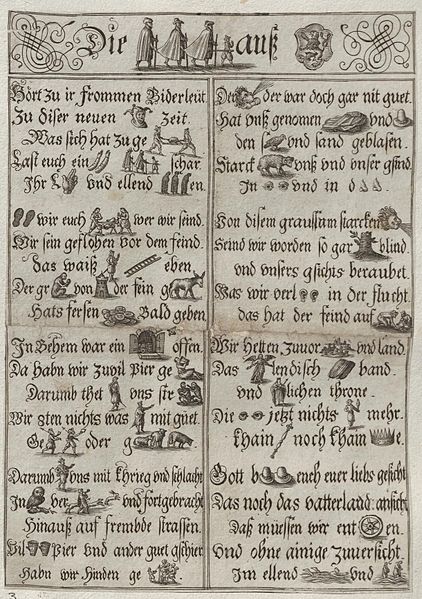 Die auß
Hört zu ir frommen Biderleüt
Zu diser neuen Zeit.
Was sich hat zu ge
Last euch ein schar
Ihr vnd ellend en.
wir euch wer wir seind.
Wir sein geflohen vor dem feind
das waiß eben.
Der gr von der fein g
Hats fersen Bald geben
In Behem war ein offen.
Da habn wir Zuvil Pier ge
Darumb thet vns
Wir ten nichts was mit guet.
Ge oder g
Darumb vns mit khrieg vnd schlacht
In ver vnd fortgebracht
Hinauß auf frembde strassen.
Vil Pier vnd ander guet gschier
Habn wir Hinden ge
Der der war doch gar nit guet.
Hat vnß genomen vnd
den vnd sand geblasen.
Starck vnß vnd vnser gsind
In vnd in d
Von disem graussam starcken
Seind wir worden so gar blind
vnd vnsers gsichts beraubet.
Was wir verl in der flucht.
das hat der feind auf
Wir hetten zuvor vnd land.
Das lendisch band.
vnd lichen throne.
Die jetzt nichts mehr.
khain noch khain e.
Gott b euch euer liebs gesicht
Das noch das vatterland ansicht
Daß müessen wir ent en.
Vnd ohne ainige zuversicht.
Im ellend vnd